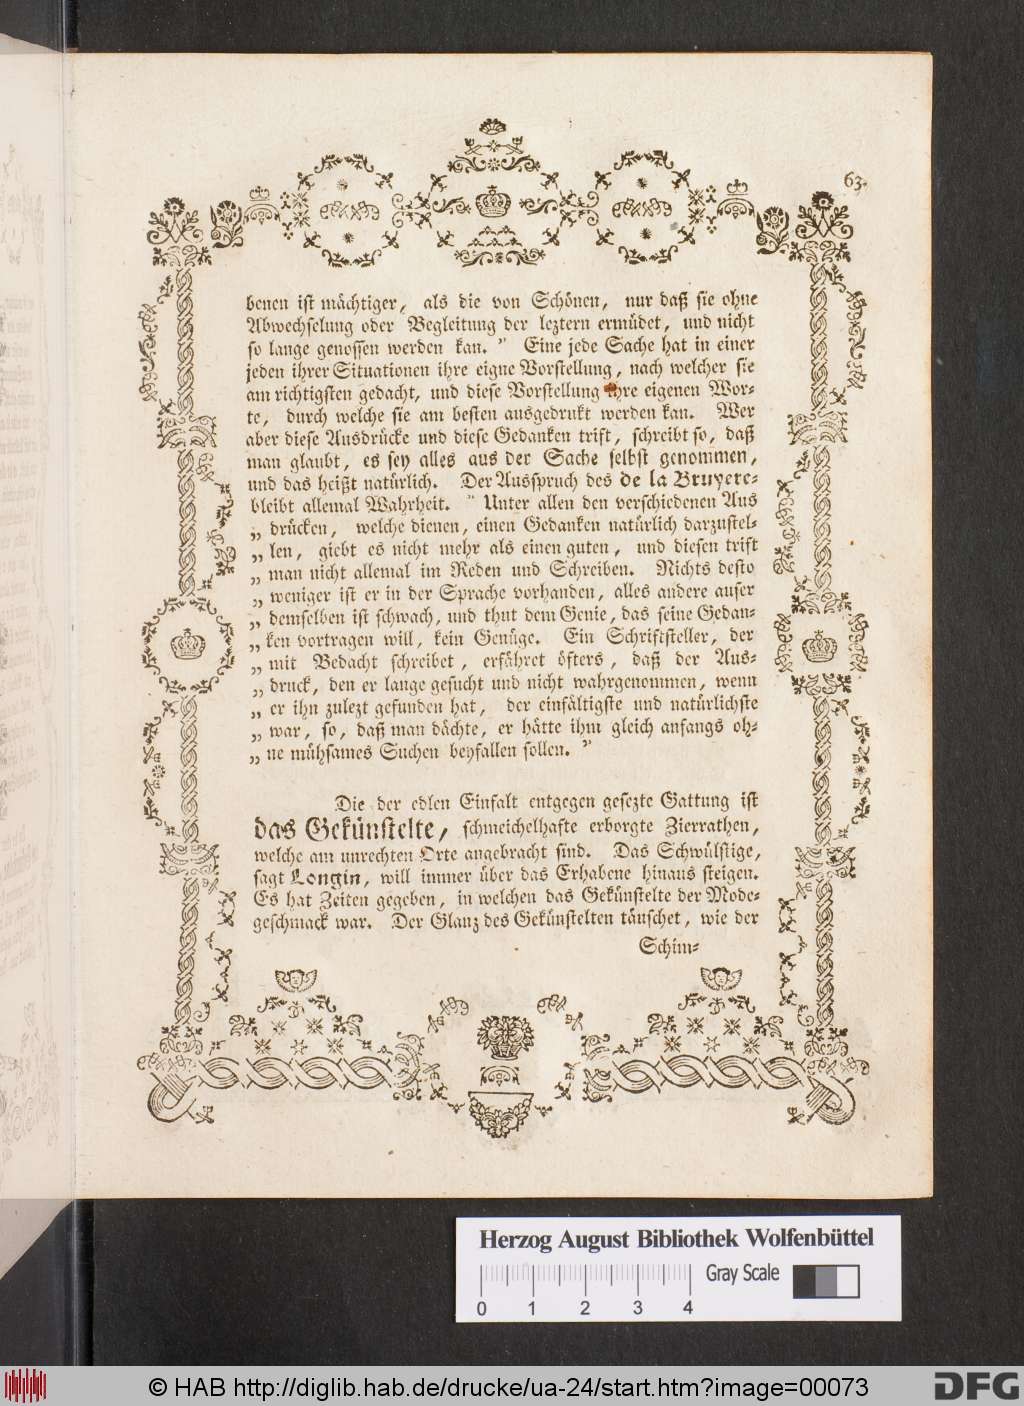 63.
benen ist mächtiger, als die von Schönen, nur daß sie ohne
Abwechselung oder Begleitung der leztern ermüdet, und nicht
so lange genossen werden kan. ” Eine jede Sache hat in einer
jeden ihrer Situationen ihre eigne Vorstellung, nach welcher sie
am richtigsten gedacht, und diese Vorstellung ihre eigenen Wor-
te, durch welche sie am besten ausgedrukt werden kan. Wer
aber diese Ausdrücke und diese Gedanken trift, schreibt so, daß
man glaubt, es sey alles aus der Sache selbst genommen,
und das heißt natürlich. Der Ausspruch des de la Bruyere-
bleibt allemal Wahrheit. “ Unter allen den verschiedenen Aus
„ drücken, welche dienen, einen Gedanken natürlich darzustel-
„ len, giebt es nicht mehr als einen guten, und diesen trift
„ man nicht allemal im Reden und Schreiben. Nichts desto
„ weniger ist er in der Sprache vorhanden, alles andere auser
„ demselben ist schwach, und thut dem Genie, das seine Gedan-
„ ken vortragen will, kein Genüge. Ein Schriftsteller, der
„ mit Bedacht schreibet, erfähret öfters, daß der Aus-
„ druck, den er lange gesucht und nicht wahrgenommen, wenn
„ er ihn zulezt gefunden hat, der einfältigste und natürlichste
„ war, so, daß man dächte, er hätte ihm gleich anfangs oh-
„ ne mühsames Suchen beyfallen sollen. ”
Die der edlen Einfalt entgegen gesezte Gattung ist
das Gekünstelte, schmeichelhafte erborgte Zierrathen,
welche am unrechten Orte angebracht sind. Das Schwülstige,
sagt Longin, will immer über das Erhabene hinaus steigen.
Es hat Zeiten gegeben, in welchen das Gekünstelte der Mode-
geschmack war. Der Glanz des Gekünstelten täuschet, wie der
Schim-
Herzog August Bibliothek Wolfenbüttel
Gray Scale
0 1 2 3 4
© HAB http://diglib.hab.de/drucke/ua-24/start.htm?image=00073
DFG